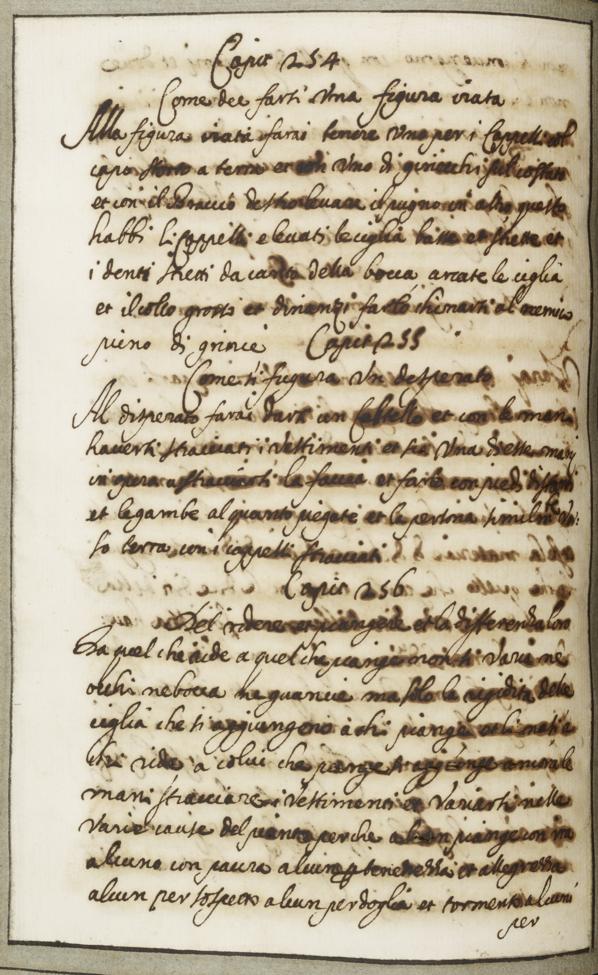 Capit 254
Come dee farsi Una figura irata
Alla figura irata farai tenere Uno per i Cappelli col
capo storto a terra et con Uno di ginocchi sul costato
et con il Braccio destro levare il pugno in alto questo
habbi li Cappelli elevati le ciglia basse et strette et
i denti stretti da canto della bocca arcate le ciglia
et il collo grosso et dinanzi farlo chinarsi al nemico
pieno di grincie Capit 255
Come si figura Un desperato
Al disperato farai darsi con Coltello et con le mani
haversi stracciati i Vestimenti et sia Una d'esse mani
in opera a stracciarsi la faccia et farlo con piedi
et le gambe al quanto piegate et la persona
so terra con i cappelli stracciati
Capit 256
Del ridere et piangere et la differenza loro
Da quel che ride a quel che piange non si Varia ne
occhi ne bocca ne guancie ma solo la rigidita delle
ciglia che si aggiungono à chi piange et
chi ride a colui che piange si aggionge anco le
mani stracciare i Vestimenti et Variarsi nelle
Varie cause del pianto perche alcun piange con ira
alcuno con paura alcun tenerezza et allegrezza
alcun per sospetto alcun per doglia et tormento alcuni
per